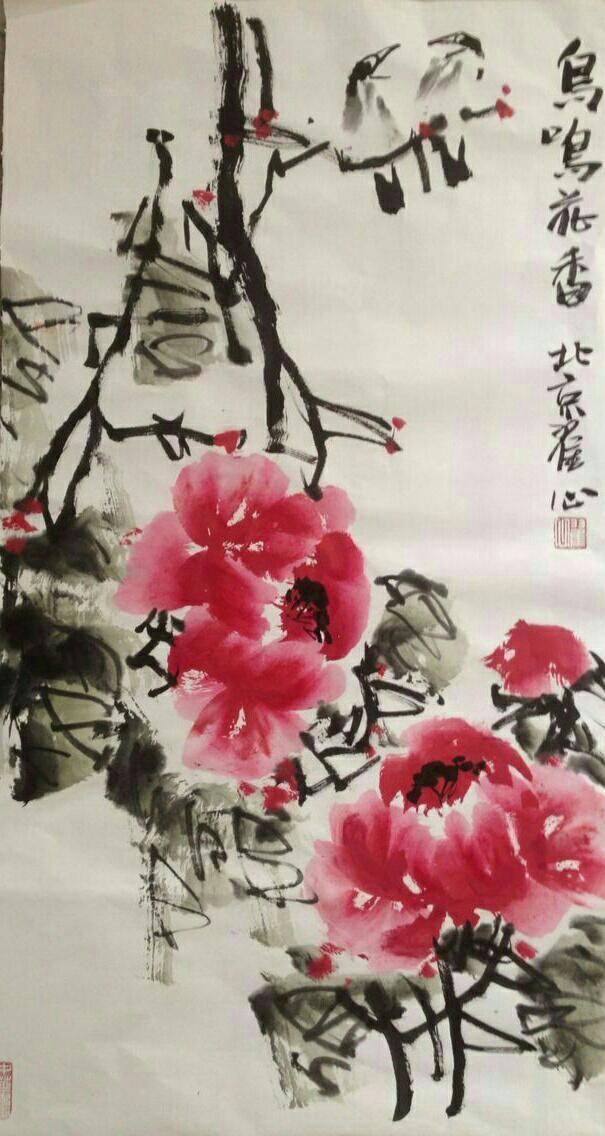 鸟鸣花香 北京崔心